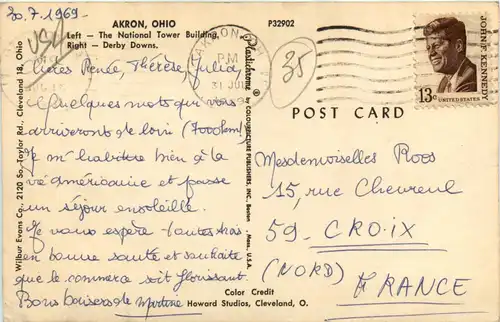 30.7.1969-
USA
AKRON, OHIO
Left — The National Tower Building,
Right — Derby Downs.
P32902
AKRON
PM
31 JUL
35
JOHN F. KENNEDY
13c UNITED STATES
Chères Renée, Thérèse, Julia,
Quelques mots qui vous
arriveront de loin (7000km).
Je m'habitue bien à la
vie américaine et passe
un séjour ensoleillé.
Je vous espère toutes trois
en bonne santé et souhaite
que le commerce soit florissant.
Bons baisers de Martine
Wilbur Evans Co., 2120 So. Taylor Rd., Cleveland 18, Ohio
Plastichrome ®
by COLOURPICTURE PUBLISHERS, INC., Boston, Mass., U.S.A.
POST CARD
Mesdemoiselles Roos
15, rue Chevreul
59- CROIX
(NORD)
FRANCE
Color Credit
Howard Studios, Cleveland, O.